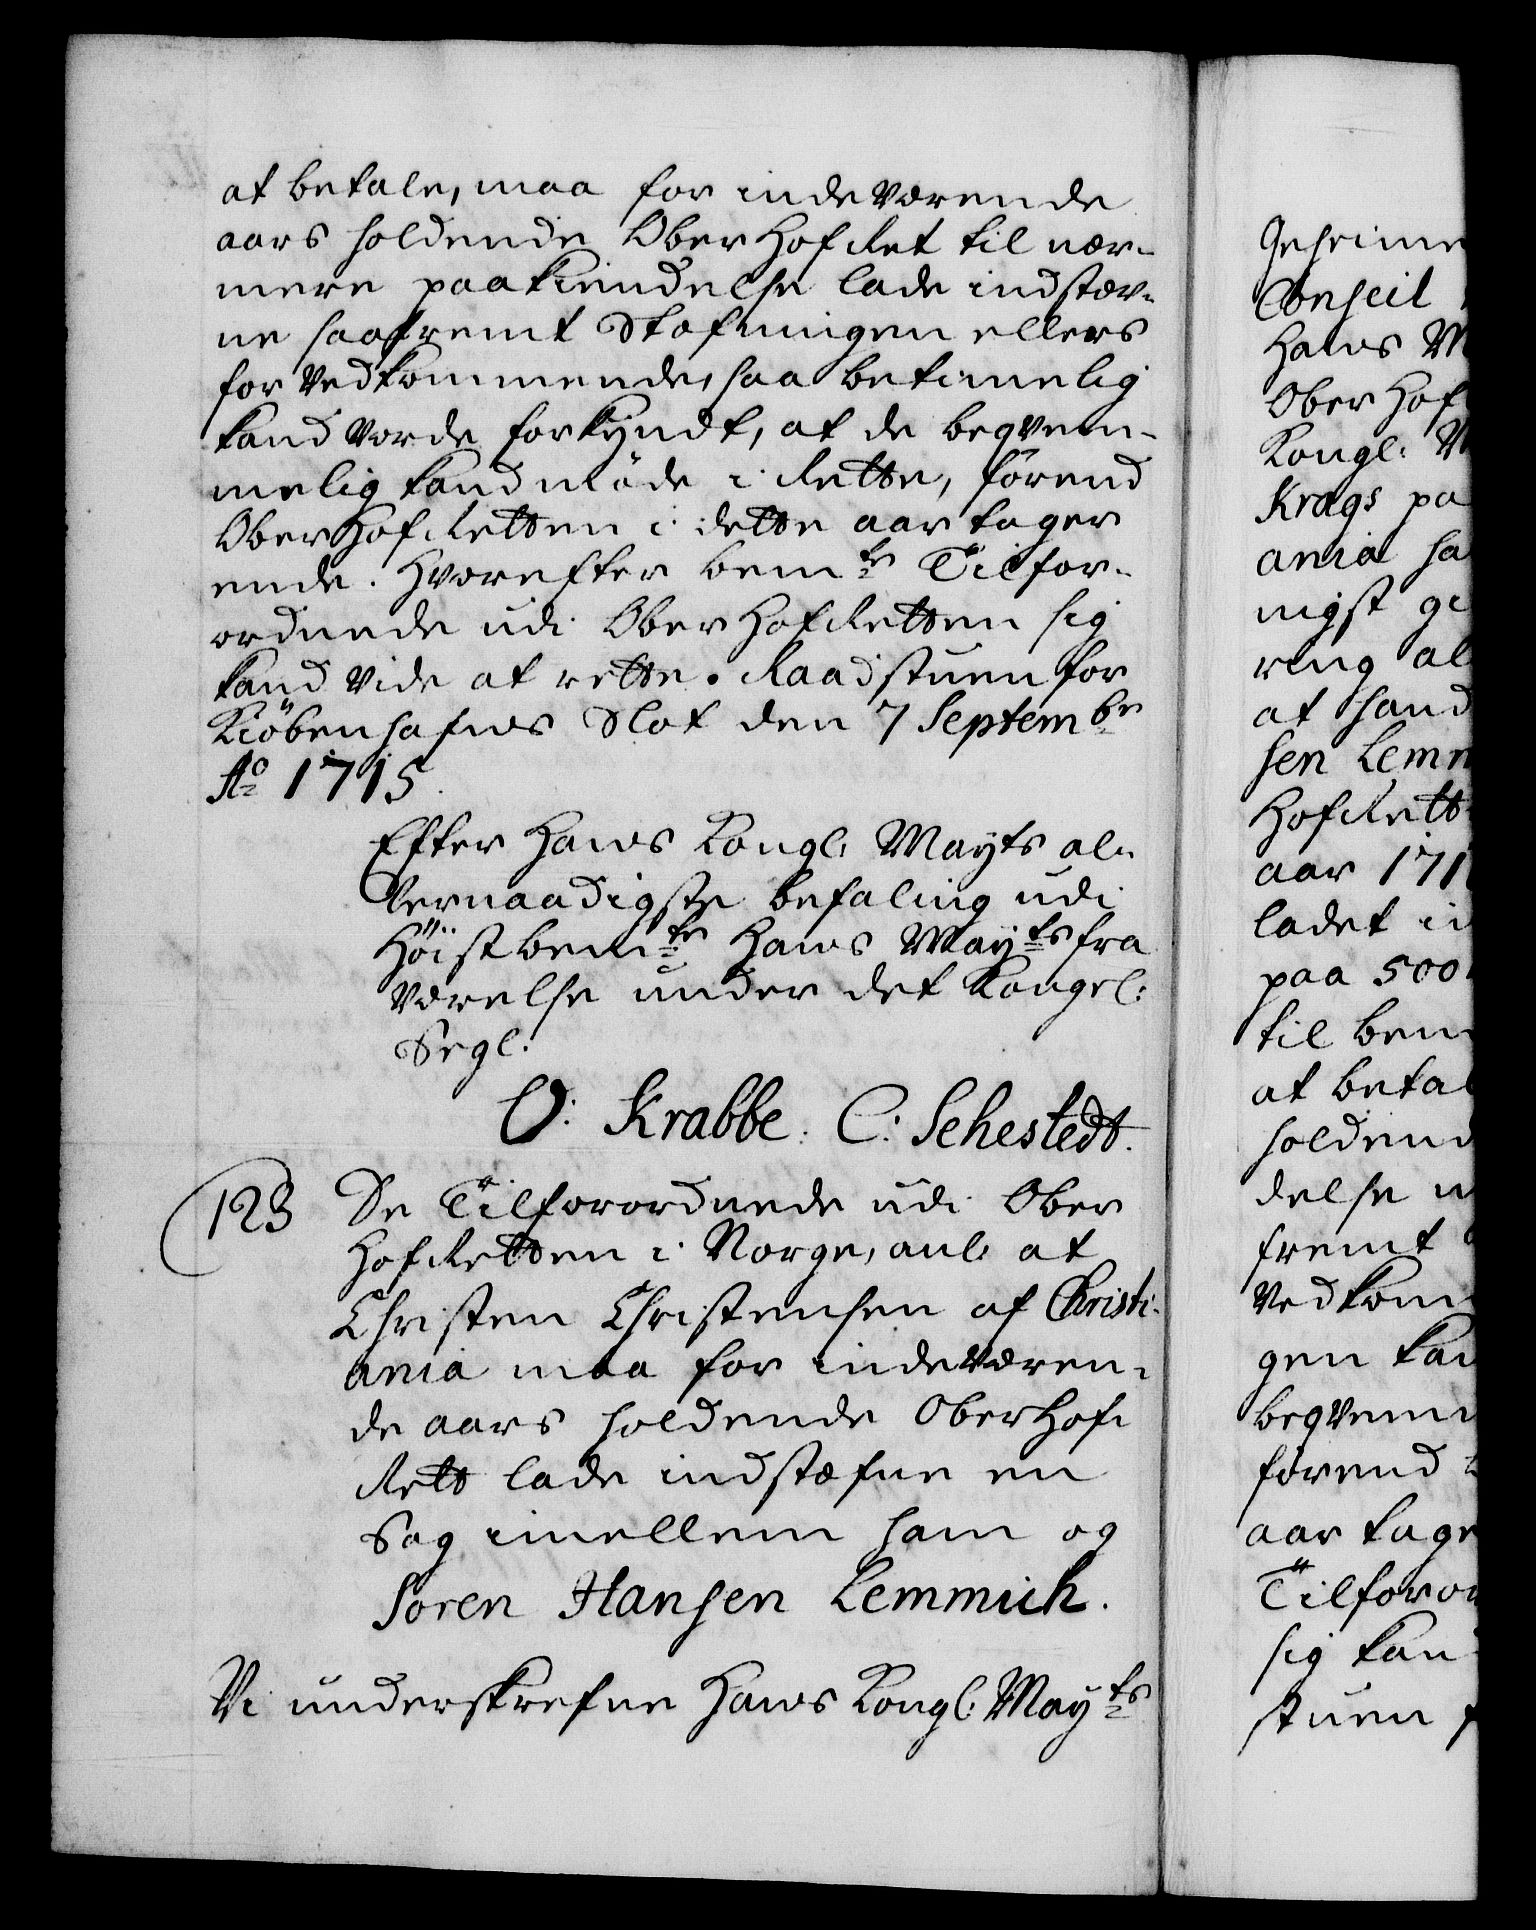 at betale, maa for indeværende
aars holdende Ober Hof Ret til nær-
mere paakiendelse lade indstæv-
ne saafremt Stefningen ellers
for Vedkommende, saa betimelig
kand vorde forkyndt, at de beqvem-
melig kand Møde i Rette, förend
Ober Hof Retten i dette aar tager
ende. Hvorefter bemte Tilfor-
ordnede udi Ober Hof Retten sig
kand vide at rette. Raadstuen for
Kiöbenhafns Slot den 7 Septembr
Ao 1715.
Efter Hans Kongl: Mayts al-
lernaadigste befaling udi
Höist bemte Hans Mayts fra
værelse under det Kongel:
Segl.
O: Krabbe. C: Sehestedt.
123
De Tilforordnede udi Ober
Hof Retten i Norge, anl: at
Christen Christensen af Christi-
ania maa for indeværen-
de aars holdende Ober Hof-
Rett lade indstæfne en
Sag imellem ham og
Soren Hansen Lemmich.
Vi underskrefne Hans Kongl: Mayts
Geheime
Conseil
Hans M
Ober Hof
Kongl: M
Krags pa
ania ha
nigst gi
ring al
at hand
sen Lemm
Hof Rett
aar 171
ladet in
paa 500
til bem
at betal
holdend
delse
fremt
Vedkom
gen kan
beqvem
förend
aar tage
Tilforor
sig kan
stuen f